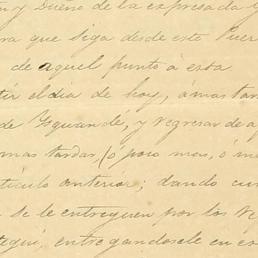 y Dueño de la expresada G
ra que siga desde este Puer
de aquel punto á esta
tir el dia de hoy, a mas tar
de Iquande, y regresar de a
mas tardar, (ó poco mas, ó me
tículo anterior; dando cu
se le entreguen por los
tegui, entregandosele en es